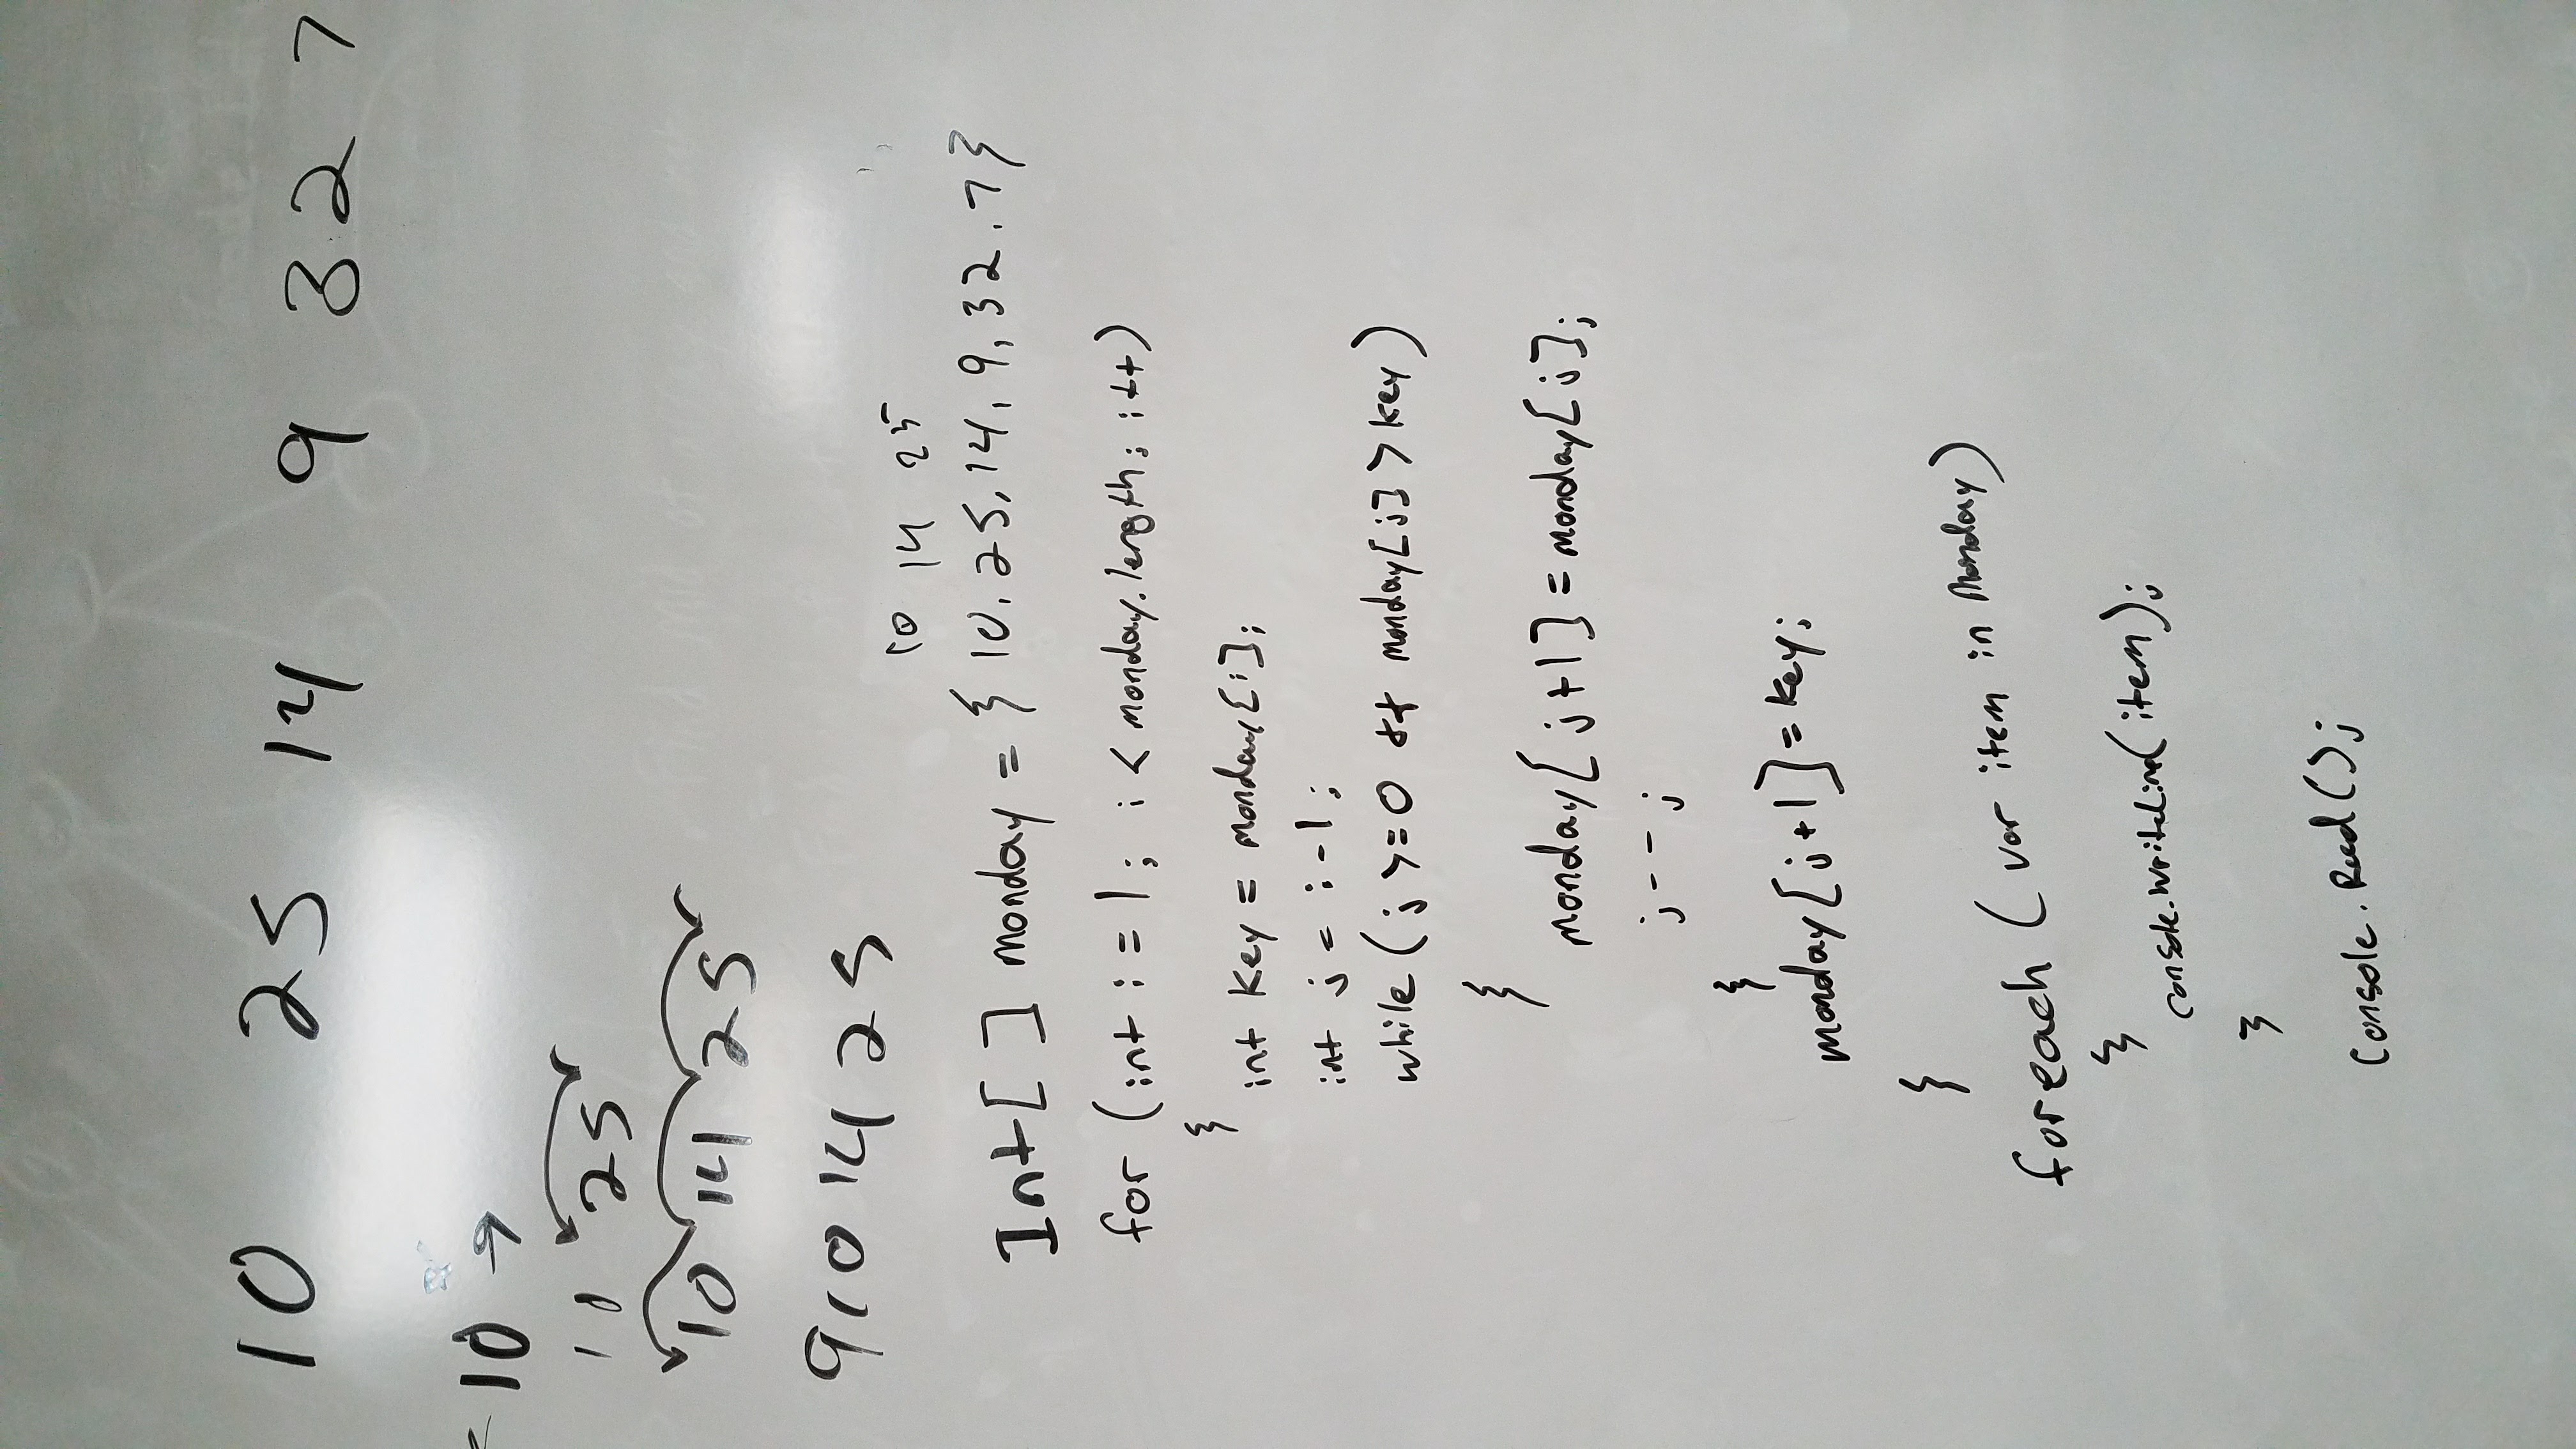 10 25 14 9 32 7
10 →
10 25
10 14 25
9 10 14 25
10 14 25
Int[ ] monday = { 10, 25, 14, 9, 32, 7 }
for (int i = 1; i < monday.length; i++)
{
int key = monday[i];
int j = i-1;
while (j >= 0 && monday[j] > key)
{
monday[j+1] = monday[j];
j--;
}
monday[j+1] = key;
}
foreach (var item in Monday)
{
console.WriteLine(item);
}
Console.Read();